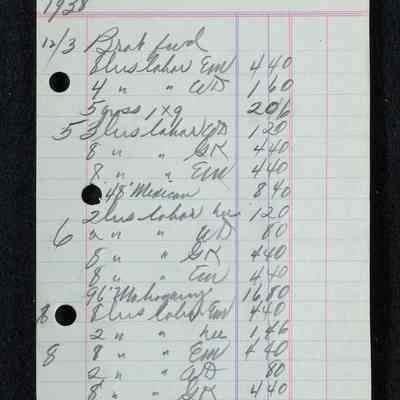 1938
12/3 Brot fwd
8 hrs labor Em 4 40
4 " " WD 1 60
5 gross 1 x 9 2 06
5 3 hrs labor WD 1 20
8 " " GK 4 40
8 " " Em 4 40
48' Mexican 8 40
2 hrs labor Lee 1 20
6 2 " " WD 80
8 " " GK 4 40
8 " " Em 4 40
96' Mahogany 16 80
8 8 hrs labor Em 4 40
2 " " Lee 1 46
8 8 " " Em 4 40
2 " " WD 80
8 " " GK 4 40